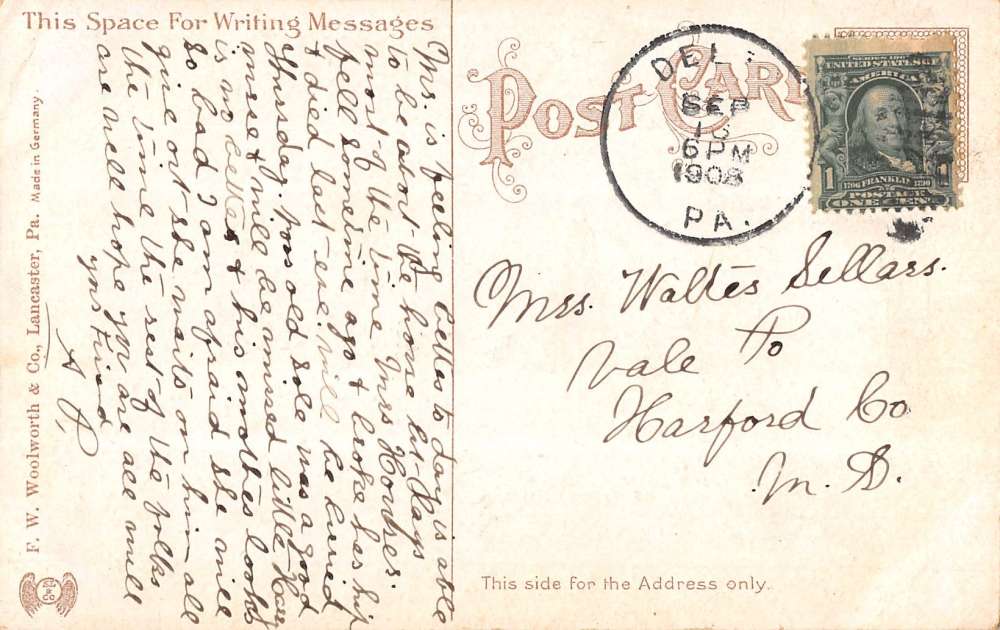 This Space For Writing Messages
Mrs. is feeling better to day is able
to be about the house but lays
most of the time Mrs Howser.
fell sometime ago & broke her hip
& died last eve. will be buried
Thursday. poor old sole was a good
nurse & will be missed little Harry
is no better & his mother looks
so bad I am afraid she will
give out she waits on him all
the time the rest of the folks
are well hope you are all well
your Friend
A P.
F. W. Woolworth & Co., Lancaster, Pa. Made in Germany.
POST CARD
DEL
SEP
6 PM
1908
PA.
SERIES 1902
UNITED STATES OF
AMERICA
1 1706 FRANKLIN 1790 1
POSTAGE
ONE CENT
Mrs. Walter Sellars.
Vale Po
Harford Co
M. D.
This side for the Address only.